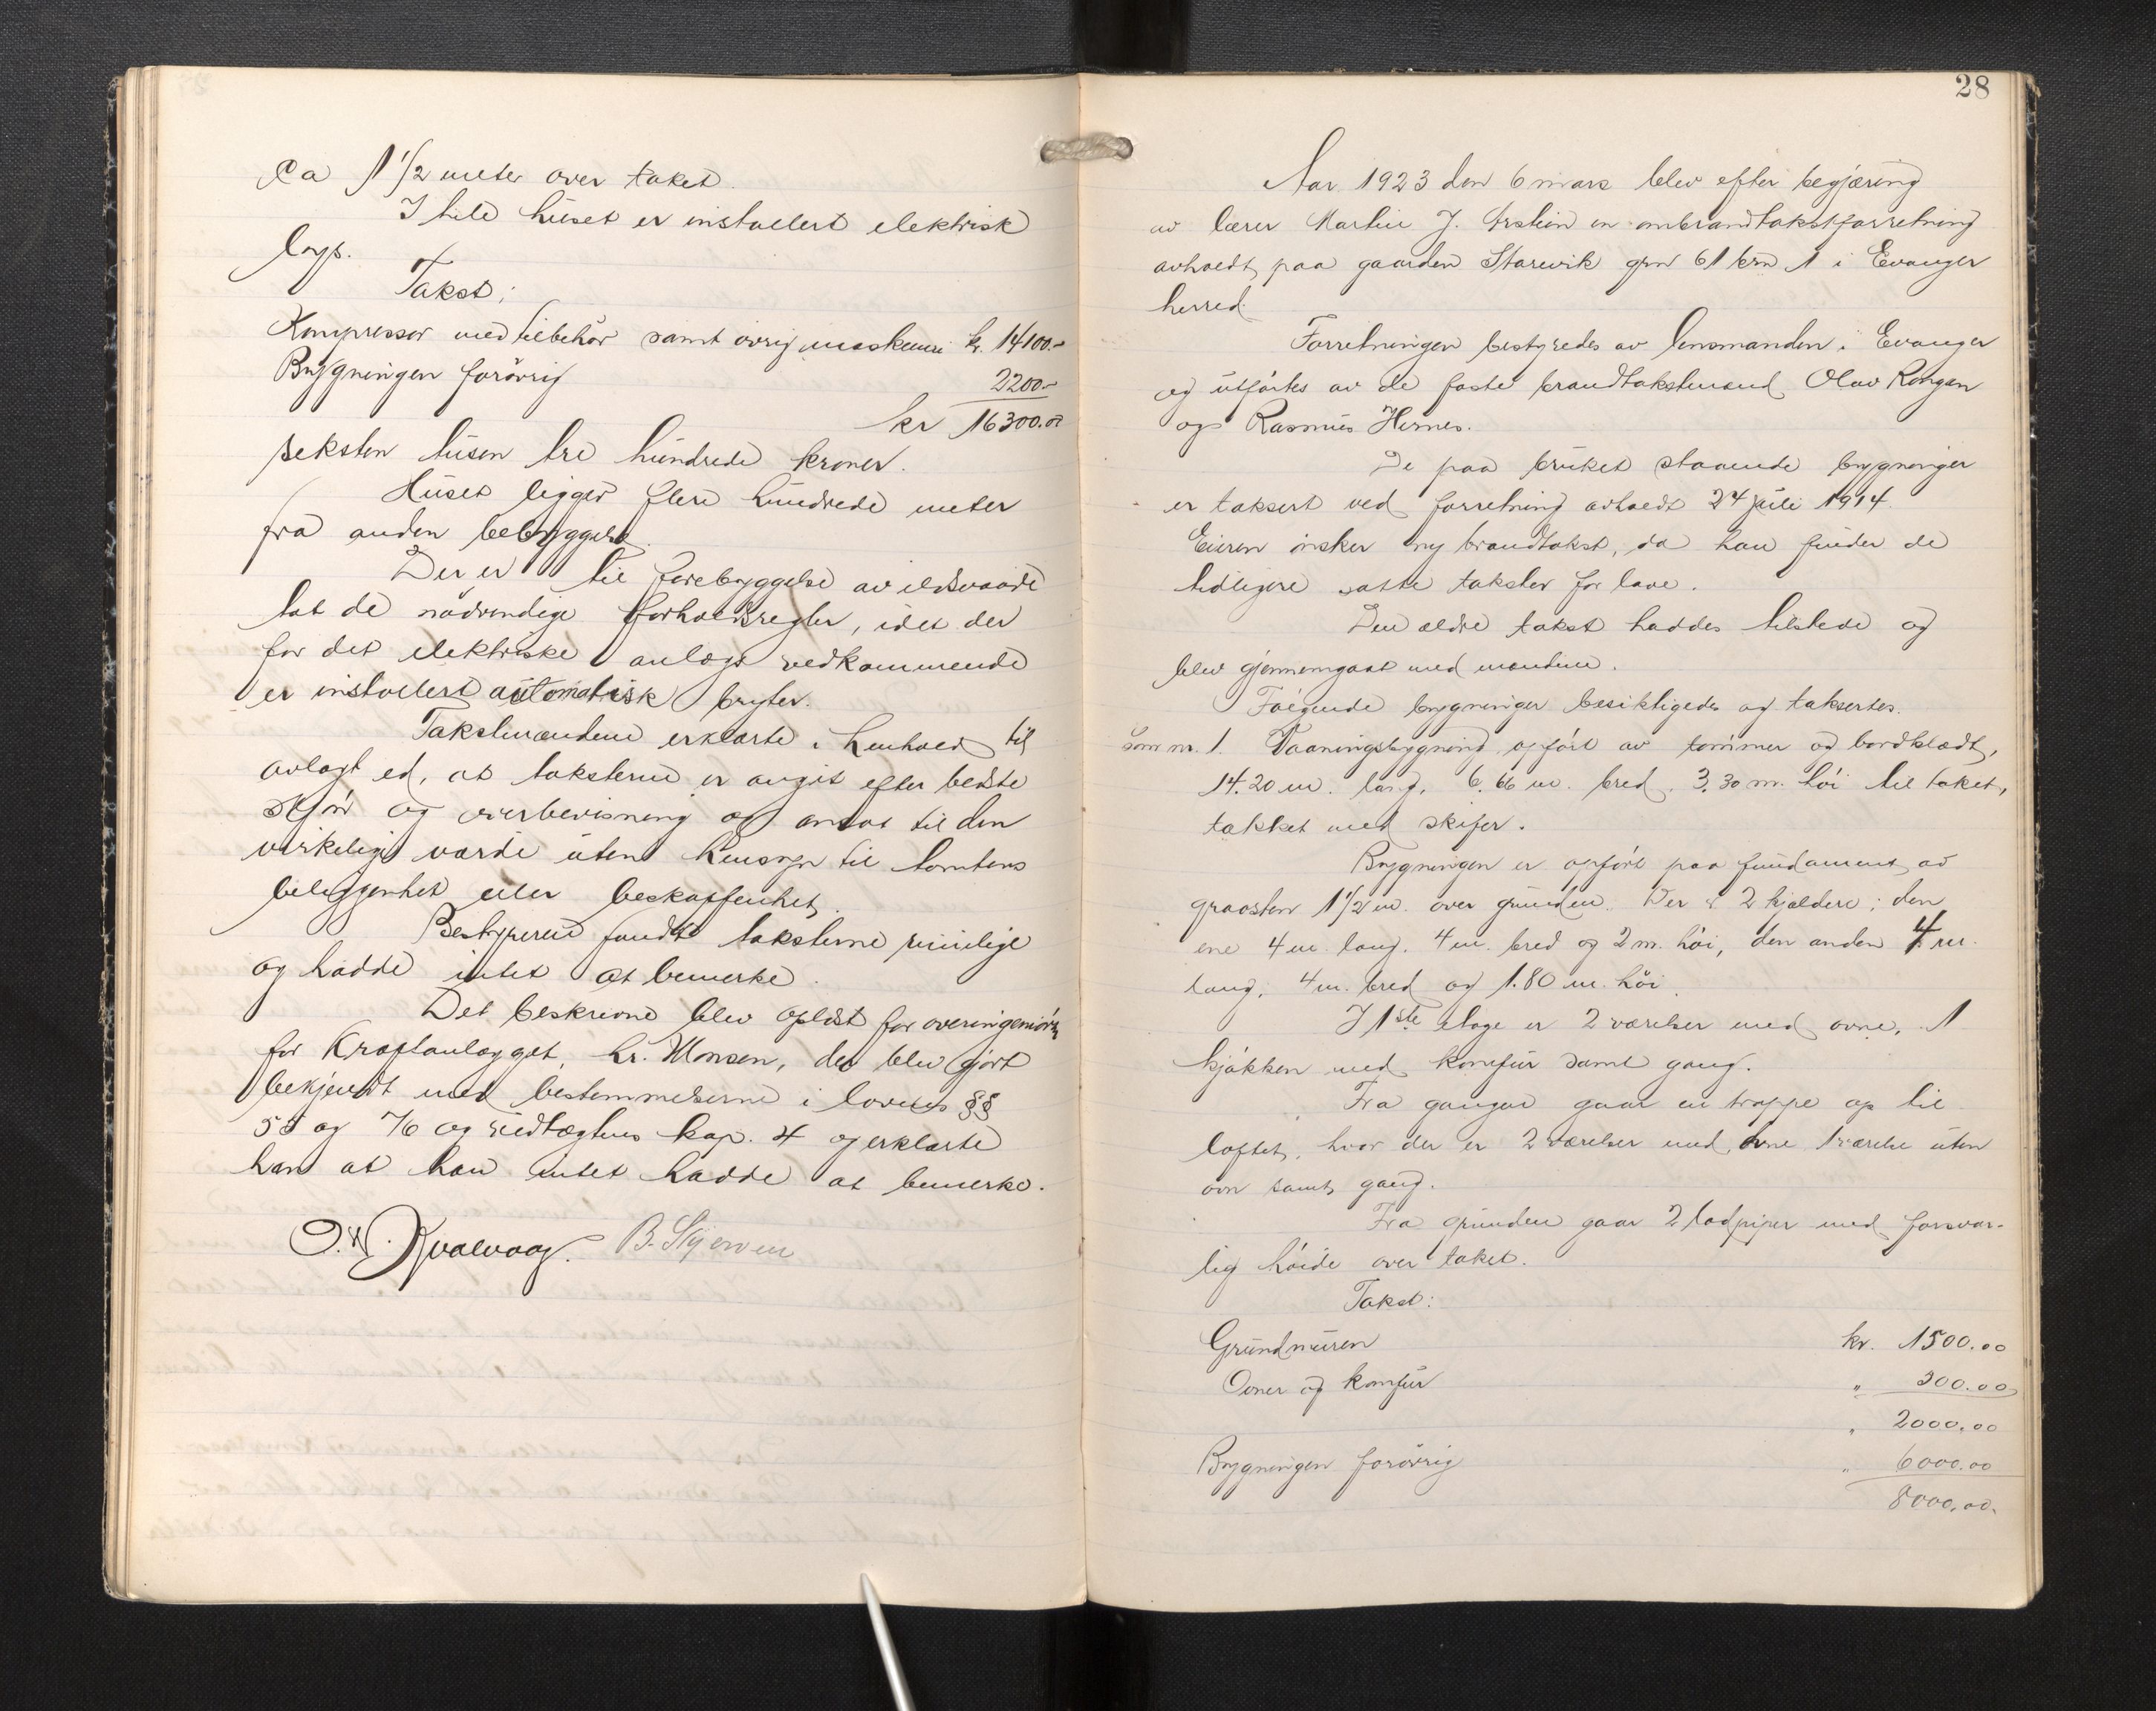 ca 1 1/2 meter over taket.
I hele huset er installert elektrisk
lys.
Takst:
Kompressor med tilbehör samt övrig maskineri kr. 14100.-
Bygningen forövrig 2200.-
kr 16300.00
seksten tusen tre hundrede kroner.
Huset ligger flere hundrede meter
fra anden bebyggelse.
Der er til forebyggelse av ildsvaade
tat de nödvendige forholdsregler, idet der
for det elektriske anlægs vedkommende
er installert automatisk bryter.
Takstmændene erklærte i henhold til
avlagt ed, at taksterne er angit efter bedste
skjön og overbevisning og ansat til den
virkelige værdi uten hensyn til tomtens
beliggenhet eller beskaffenhet.
Bestyreren fandt taksterne rimelige
og hadde intet at bemerke.
Det beskrevne blev oplæst for overingeniören
for Kraftanlægget, hr. Monsen, der blev gjort
bekjendt med bestemmelserne i lovens §§
55 og 76 og vedtægtenes kap. 4 og erklærte
han at han intet hadde at bemerke.
O. N. Kvalvaag. B. Skjerven
28
Aar 1923 den 6 mars blev efter begjæring
av lærer Martin J. en ombrandtakstforretning
avholdt paa gaarden Starevik gnr 61 brn 1 i Evanger
herred.
Forretningen bestyredes av lensmanden i Evanger
og utförtes av de faste brandtakstmænd Olav Rongen
og Rasmus Hernes.
De paa bruket staaende bygninger
er taksert ved forretning avholdt 24 juli 1914.
Eieren önsker ny brandtakst, da han finder de
tidligere satte takster for lave.
Den ældre takst haddes tilstede og
blev gjennemgaat med mændene.
Fölgende bygninger besiktigedes og taksertes.
som nr. 1. Vaaningsbygning opfört av tömmer og bordklædt,
14.20 m. lang, 6.66 m. bred, 3.30 m. höi til taket,
tækket med skifer.
Bygningen er opfört paa fundament av
graasten 1 1/2 m. over grunden. Der er 2 kjældere; den
ene 4 m. lang, 4 m. bred og 2 m. höi, den anden 4 m.
lang, 4 m. bred og 1.80 m. höi.
I 1ste etage er 2 værelser med ovne, 1
kjökken med komfür samt gang.
Fra gangen gaar en trappe op til
loftet, hvor der er 2 værelser med ovne 1 værelse uten
ovn samt gang.
Fra grunden gaar 2 lodpiper med forsvar-
lig höide over taket.
Takst:
Grundmuren kr. 1500.00
Ovner og komfür " 500.00
" 2000.00
Bygningen forövrig " 6000.00
8000.00.